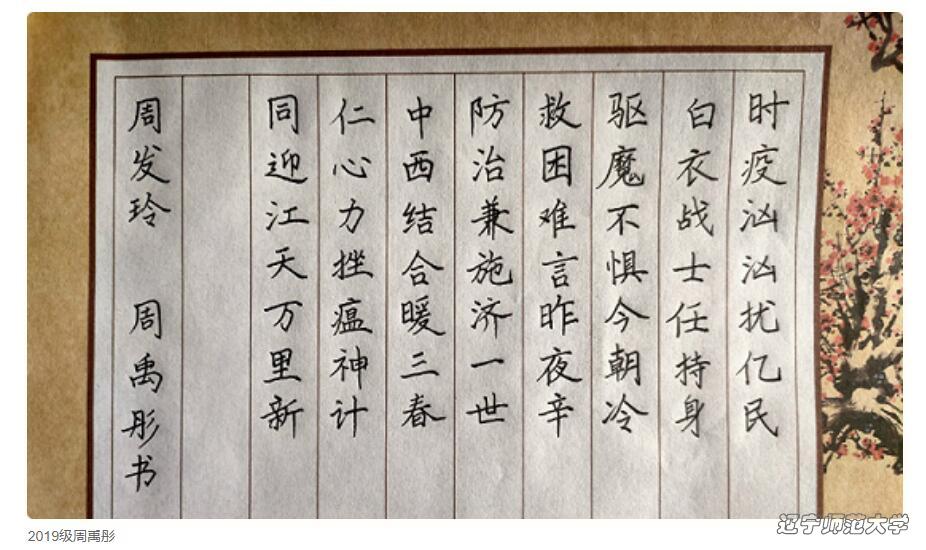 时疫汹汹扰亿民
白衣战士任持身
驱魔不惧今朝冷
救困难言昨夜辛
防治兼施济一世
中西结合暖三春
仁心力挫瘟神计
同迎江天万里新
周发玲 周禹彤书
辽宁师范大学
2019级周禹彤